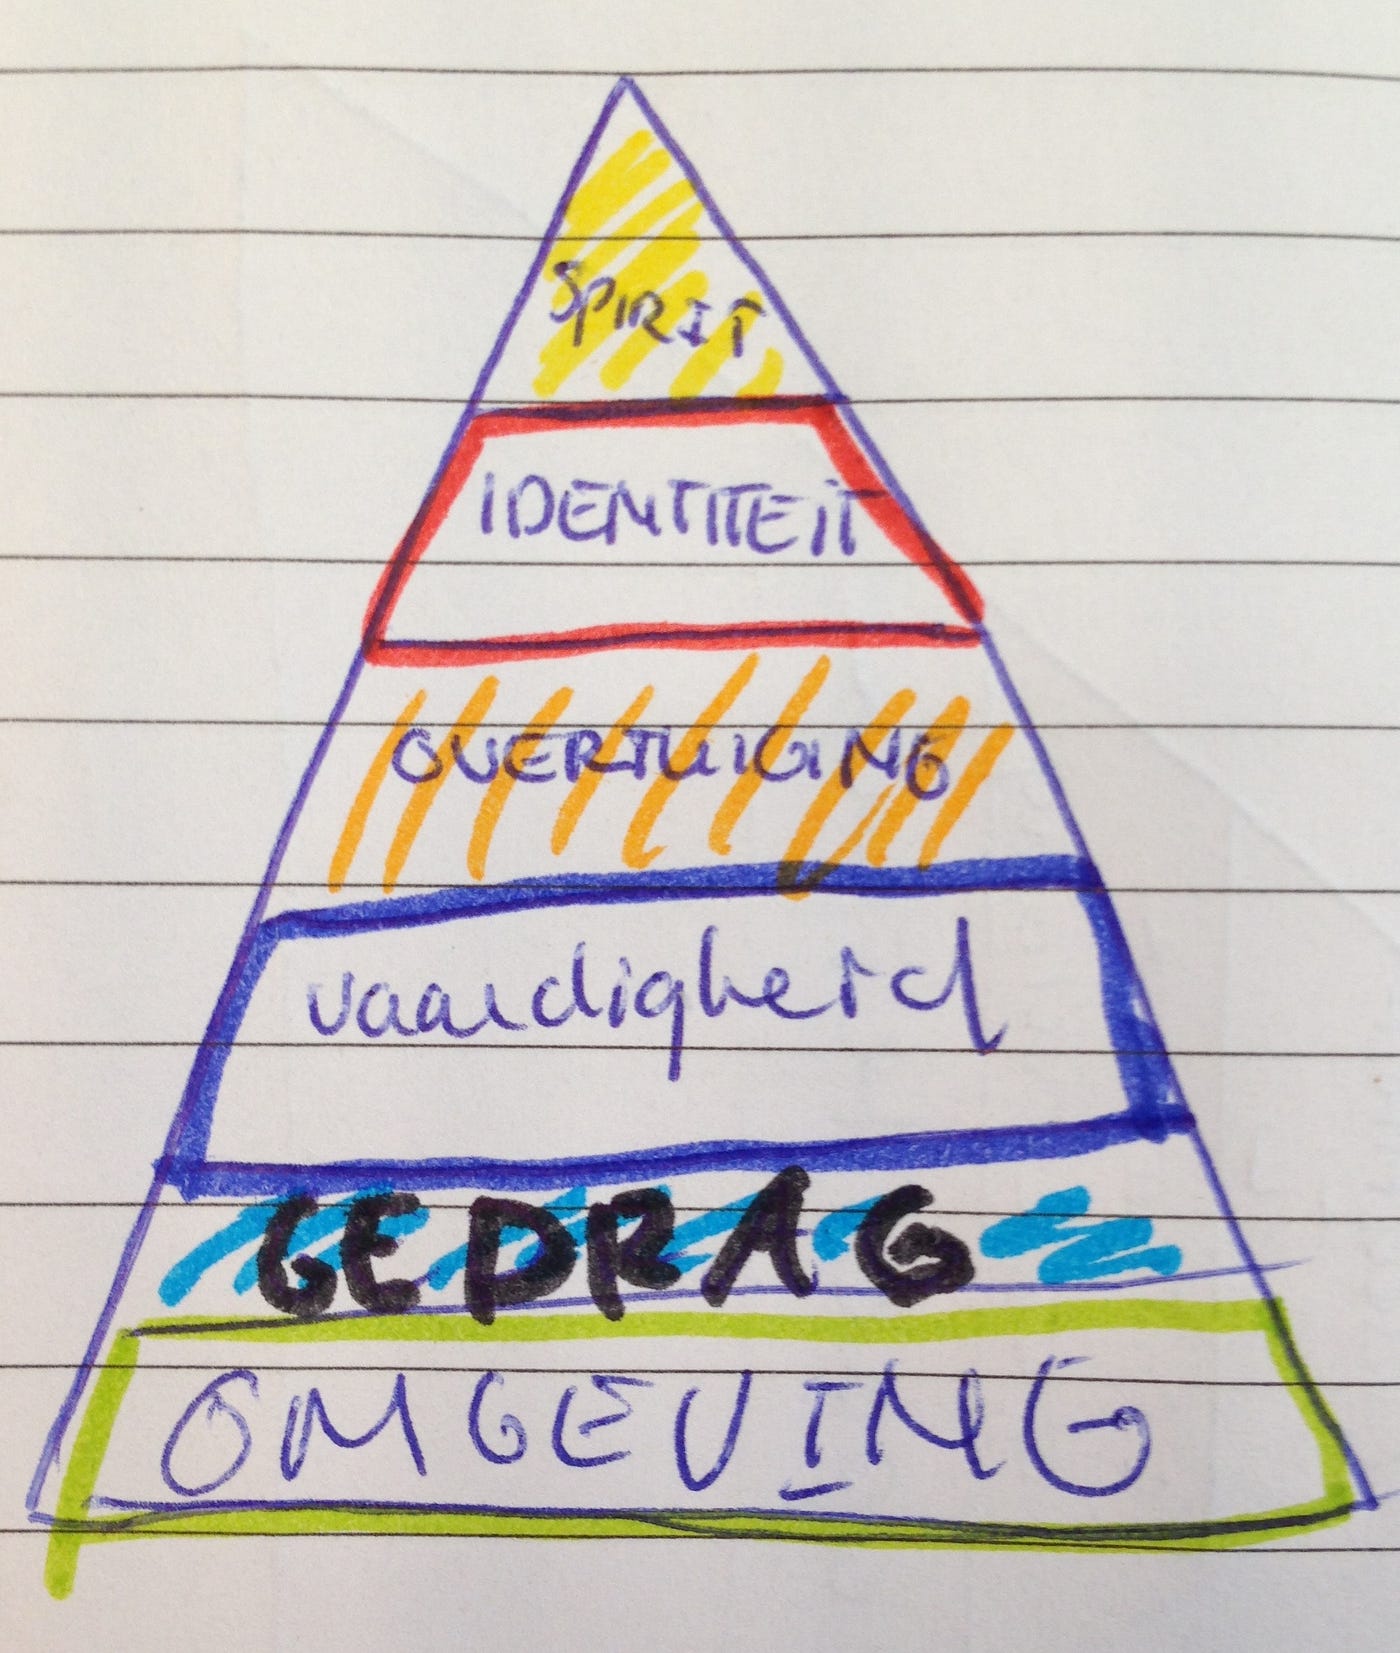 SPIRIT
IDENTITEIT
OVERTUIGING
vaardigheid
GEDRAG
OMGEVING